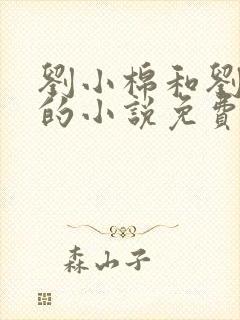 劉小棉和劉
的小說免費
森山子